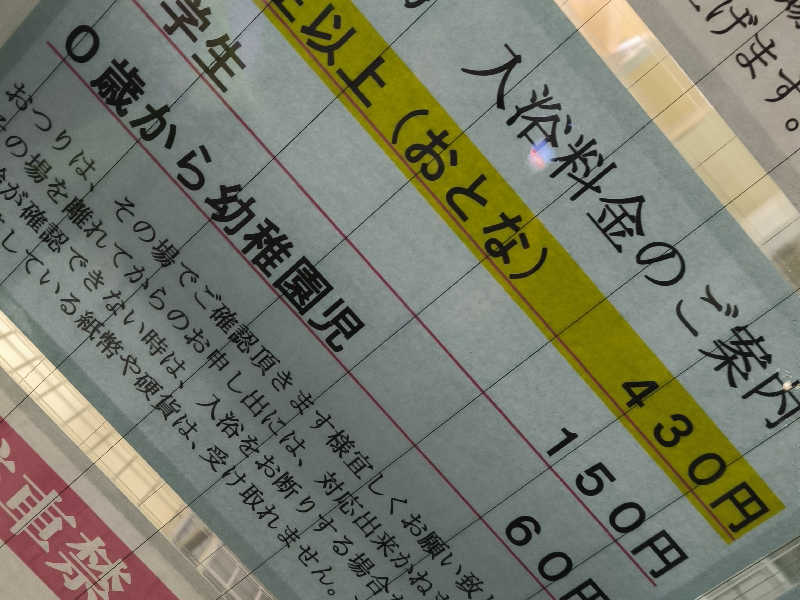 げます。
入浴料金のご案内
生以上(おとな) 430円
学生 150円
0歳から幼稚園児 60円
おつりは、その場でご確認頂きます様宜しくお願い致し
の場を離れてからのお申し出には、対応出来かねま
が確認できない時は、入浴をお断りする場合
している紙幣や硬貨は、受け取れません。
車禁